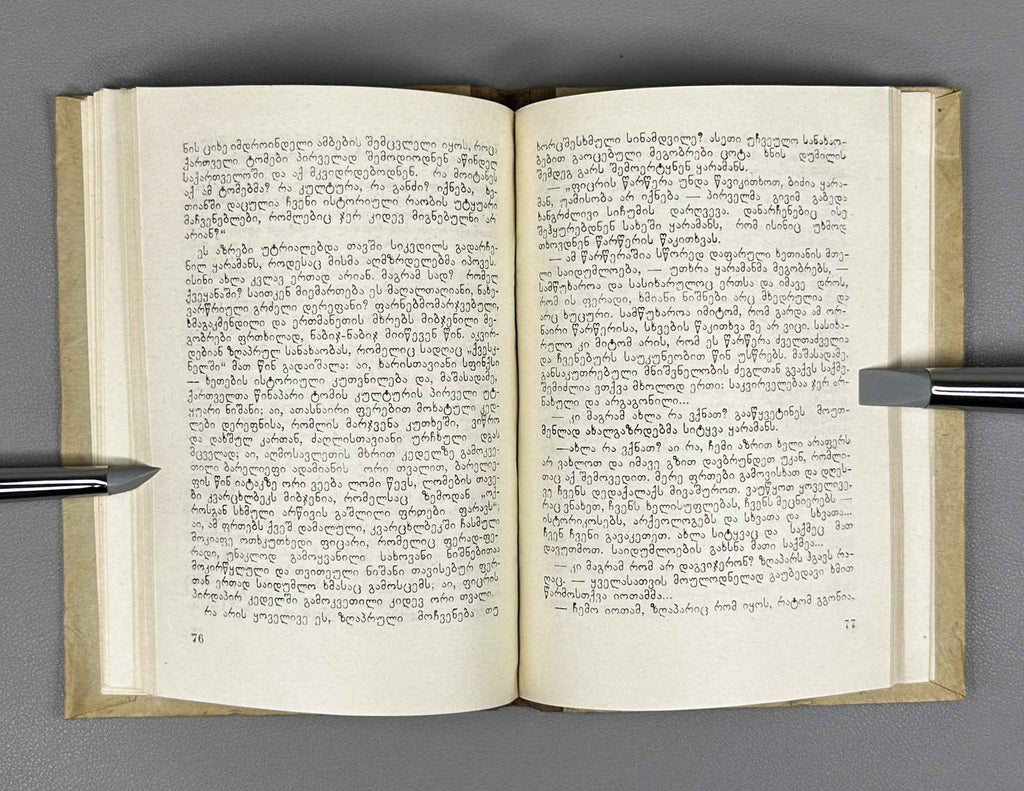 ნის ციხე იმდროინდელი ამბების შემცვლელი იყოს, როცა
ქართველი ტომები პირველად შემოდიოდნენ აწინდელ
საქართველოში და აქ მკვიდრდებოდნენ. რა მოიტანეს
აქ ამ ტომებმა? რა კულტურა, რა განძი? იქნება, ხე-
თიანში დაცულია ჩვენი ისტორიული რაობის უტყუარი
მაჩვენებლები, რომლებიც ჯერ კიდევ მიგნებულნი არ
არიან?“
ეს აზრები უტრიალებდა თავში სიკვდილს გადარჩე-
ნილ ყარამანს, როდესაც მისმა აღმზრდელებმა იპოვეს.
ისინი ახლა კვლავ ერთად არიან. მაგრამ სად? რომელ
ქვეყანაში? საითკენ მიემართება ეს მაღალთაღიანი, ნახე-
ვარწრიული გრძელი დერეფანი? ფარნებმომარჯვებული,
ხმაგაკმენდილი და ერთმანეთის მხრებს მიბჯენილი მე-
გობრები ფრთხილად, ნაბიჯ-ნაბიჯ მიიწევენ წინ. აკვირ-
დებიან ზღაპრულ სანახაობას, რომელიც სადღაც „ქვესკ-
ნელში“ მათ წინ გადაიშალა: აი, ხარისთავიანი სფინქსი
— ხეთების ისტორიული კუთვნილება და, მაშასადამე,
ქართველთა წინაპარი ტომის კულტურის პირველი უტ-
ყუარი ნიშანი; აი, ათასნაირი ფერებით მოხატული კედ-
ლები დერეფნისა, რომლის მარჯვენა კუთხეში, ვიწრო
და დახშულ კართან, ძაღლისთავიანი ურჩხული დგას
მცველად; აი, აღმოსავლეთის მხრით კედელზე გამოკვე-
თილი ბარელიეფი ადამიანის ორი თვალით, ბარელიე-
ფის წინ იატაკზე ორი ვეება ლომი წევს, ლომების თავე-
ბი კვარცხლბეკს მიბჯენია, რომელსაც ზემოდან „ოქ-
როსგან სხმული არწივის გაშლილი ფრთები ფარავს“;
აი, ამ ფრთებს ქვეშ დამალული, კვარცხლბეკში ჩასმული
მოკიაფე ოთხკუთხედი ფიცარი, რომელიც ფერად-ფე-
რადი, უნაკლოდ გამოყვანილი სახოვანი ნიშნებითაა
მოკირწყლული და თვითეული ნიშანი თავისებურ ფერ-
თან ერთად საიდუმლო ხმასაც გამოსცემს; აი, ფიცრის
პირდაპირ კედელში გამოკვეთილი კიდევ ორი თვალი.
რა არის ყოველივე ეს, ზღაპრული მოჩვენება თუ
76
ხორცშესხმული სინამდვილე? ასეთი უჩვეულო სანახაო-
ბებით გაოცებული მეგობრები ცოტა ხნის დუმილის
შემდეგ გარს შემოერტყნენ ყარამანს.
— „ფიცრის წარწერა უნდა წავიკითხოთ, ბიძია ყარა-
მან, უამისობა არ იქნება — პირველმა გივიმ გაბედა
ხანგრძლივი სიჩუმის დარღვევა. დანარჩენებიც ისე
შეჰყურებდნენ სახეში ყარამანს, რომ ისინიც უხმოდ
თხოვდნენ წარწერის წაკითხვას.
— ამ წარწერაშია სწორედ დაფარული ხეთიანის მთე-
ლი საიდუმლოება, — უთხრა ყარამანმა მეგობრებს, —
სამწუხაროა და სასიხარულოც ერთსა და იმავე დროს,
რომ ის ფერადი, ხმიანი ნიშნები არც მხედრულია და
არც ხუცური. სამწუხაროა იმიტომ, რომ გარდა ამ ორ-
ნაირი წარწერისა, სხვების წაკითხვა მე არ ვიცი. სასიხა-
რულო კი მიტომ არის, რომ ეს წარწერა ძველთაძველია
და ჩვენებურს საუკუნეობით წინ უსწრებს. მაშასადამე,
განსაკუთრებული მნიშვნელობის ძეგლთან გვაქვს საქმე.
შემიძლია ვთქვა მხოლოდ ერთი: საკვირველებაა ჯერ არ-
ნახული და არგაგონილი...
— კი მაგრამ ახლა რა ვქნათ? გააწყვეტინეს მოუთ-
მენლად ახალგაზრდებმა სიტყვა ყარამანს.
—ახლა რა ვქნათ? აი რა, ჩემი აზრით ხელი არაფერს
არ ვახლოთ და იმავე გზით დავბრუნდეთ უკან, რომლი-
თაც აქ შემოვედით. მერე ფრთები გამოვისხათ და დღეს-
ვე ჩვენს დედაქალაქს მივაშუროთ. ვაუწყოთ ყოველივე,
რაც ვნახეთ, ჩვენს ხელისუფლებას, ჩვენს მეცნიერებს —
ისტორიკოსებს, არქეოლოგებს და სხვათა და სხვათა...
ჩვენ ჩვენი გავაკეთეთ. ახლა სიტყვაც და საქმეც მათ
დავუთმოთ. საიდუმლოების გახსნა მათი საქმეა...
— კი მაგრამ რომ არ დაგვიჯერონ? ზღაპარს ჰგავს რა-
ღაც. — ყველასათვის მოულოდნელად გაუბედავი ხმით
წარმოსთქვა იოთამმა...
— ჩემო იოთამ, ზღაპარიც რომ იყოს, რატომ გგონია,
77